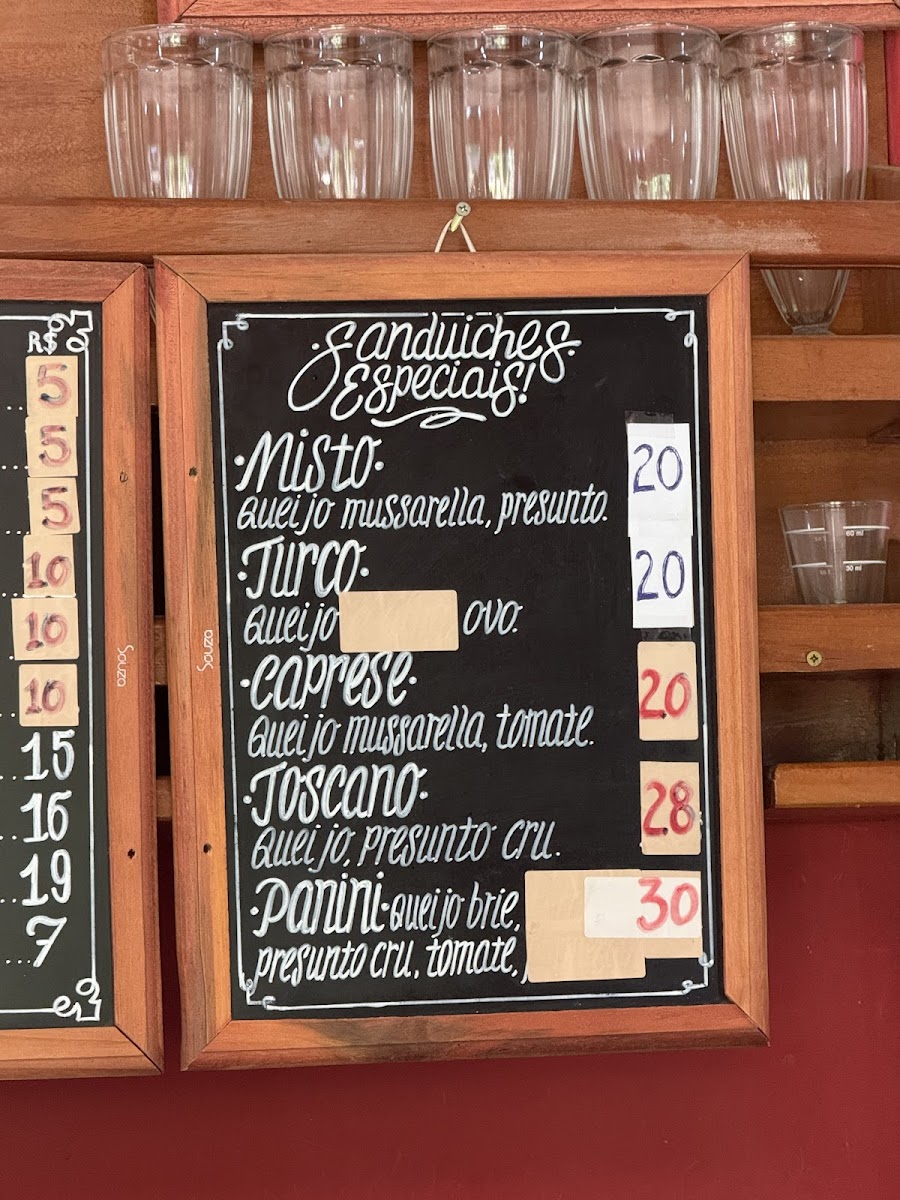 R$
5
5
5
10
10
10
15
16
19
7
Souza
Souza
Sanduiches
Especiais!
Misto 20
Queijo mussarella, presunto.
Turco 20
Queijo ovo.
Caprese 20
Queijo mussarella, tomate.
Toscano 28
Queijo, presunto cru.
Panini Queijo brie, 30
presunto cru, tomate,
60 ml
30 ml